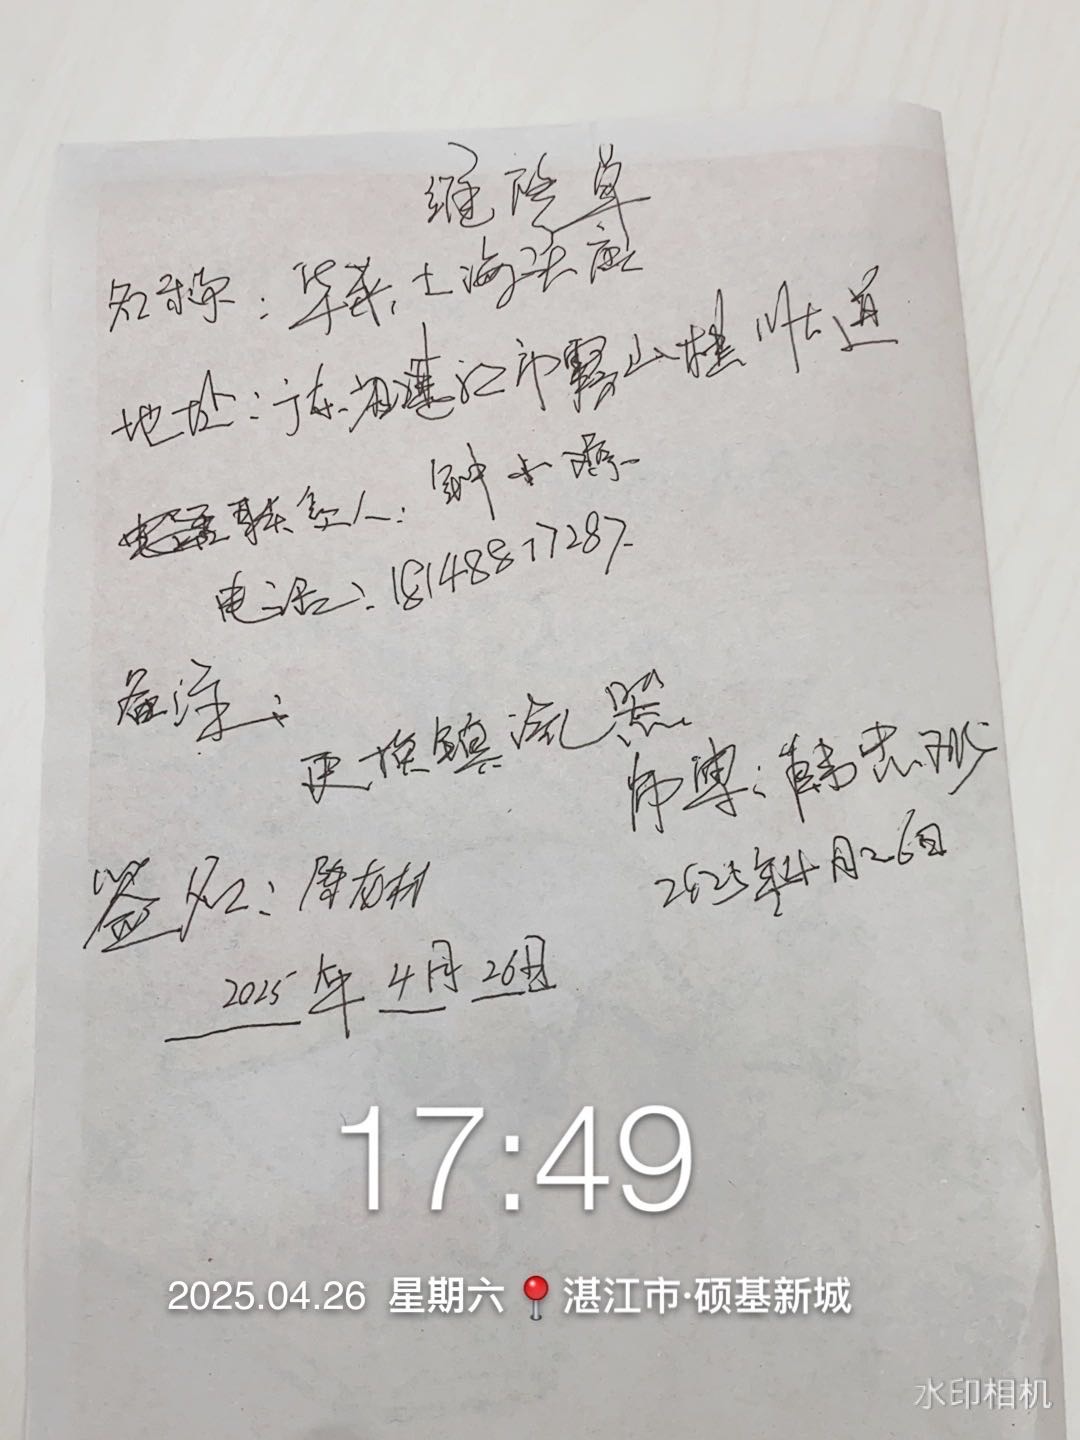 维修单
名称：华莱士海头店
地址：广东省湛江市霞山椹川大道
联系人：钟小
电话：18148877287
备注：
更换镇流器
师傅：韩忠
2025年4月26日
签名：陈有林
2025年4月26日
17:49
2025.04.26 星期六 湛江市·硕基新城
水印相机